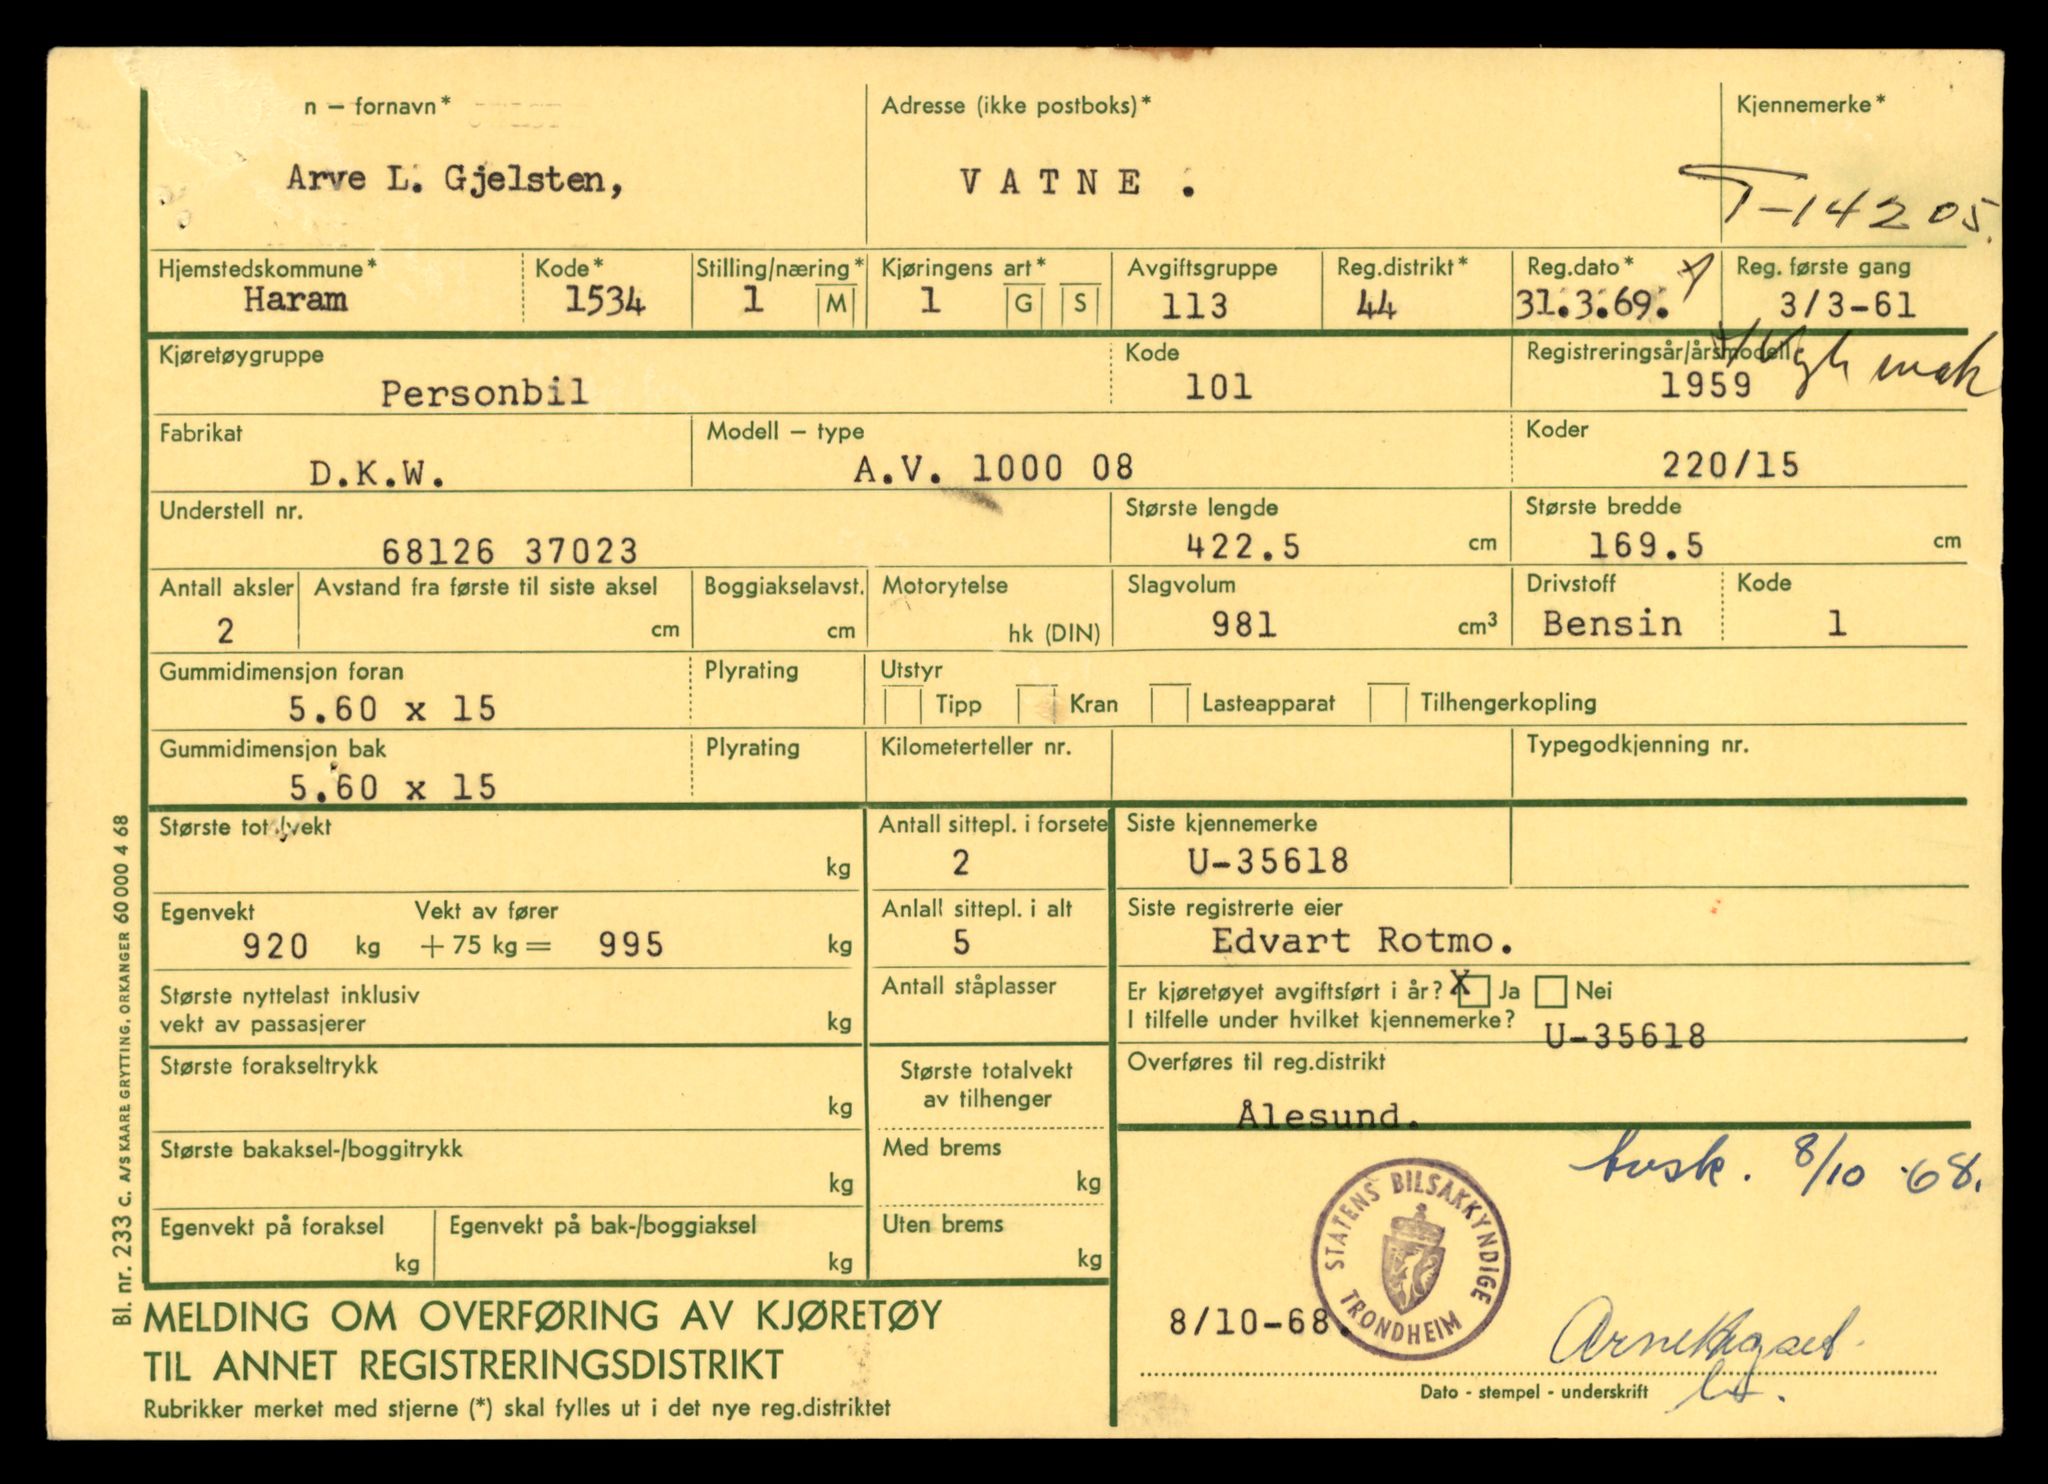 n – fornavn*
Adresse (ikke postboks)*
Kjennemerke*
Arve L. Gjelsten,
VATNE .
T-14205.
Hjemstedskommune*
Kode*
Stilling/næring*
Kjøringens art*
Avgiftsgruppe
Reg.distrikt*
Reg.dato*
Reg. første gang
Haram
1534
1 M
1 G S
113
44
31.3.69.
3/3-61
Kjøretøygruppe
Kode
Registreringsår/årsmodell
Personbil
101
1959
Fabrikat
Modell – type
Koder
D.K.W.
A.V. 1000 08
220/15
Understell nr.
Største lengde
Største bredde
68126 37023
422.5 cm
169.5 cm
Antall aksler
Avstand fra første til siste aksel
Boggiakselavst.
Motorytelse
Slagvolum
Drivstoff
Kode
2
cm
cm
hk (DIN)
981 cm³
Bensin
1
Gummidimensjon foran
Plyrating
Utstyr
5.60 x 15
Tipp
Kran
Lasteapparat
Tilhengerkopling
Gummidimensjon bak
Plyrating
Kilometerteller nr.
Typegodkjenning nr.
5.60 x 15
Største totalvekt
kg
Antall sittepl. i forsete
2
Siste kjennemerke
U-35618
Egenvekt
Vekt av fører
920 kg + 75 kg = 995 kg
Anlall sittepl. i alt
5
Siste registrerte eier
Edvart Rotmo.
Største nyttelast inklusiv
vekt av passasjerer
kg
Antall ståplasser
Er kjøretøyet avgiftsført i år? X Ja Nei
I tilfelle under hvilket kjennemerke?
U-35618
Største forakseltrykk
kg
Største totalvekt
av tilhenger
Overføres til reg.distrikt
Ålesund.
Største bakaksel-/boggitrykk
kg
Med brems
kg
8/10 -68.
Egenvekt på foraksel
kg
Egenvekt på bak-/boggiaksel
kg
Uten brems
kg
STATENS BILSAKKYNDIGE
TRONDHEIM
8/10-68.
Dato - stempel - underskrift
MELDING OM OVERFØRING AV KJØRETØY
TIL ANNET REGISTRERINGSDISTRIKT
Rubrikker merket med stjerne (*) skal fylles ut i det nye reg.distriktet
Bl. nr. 233 C. A/S KAARE GRYTTING, ORKANGER 60000 4 68